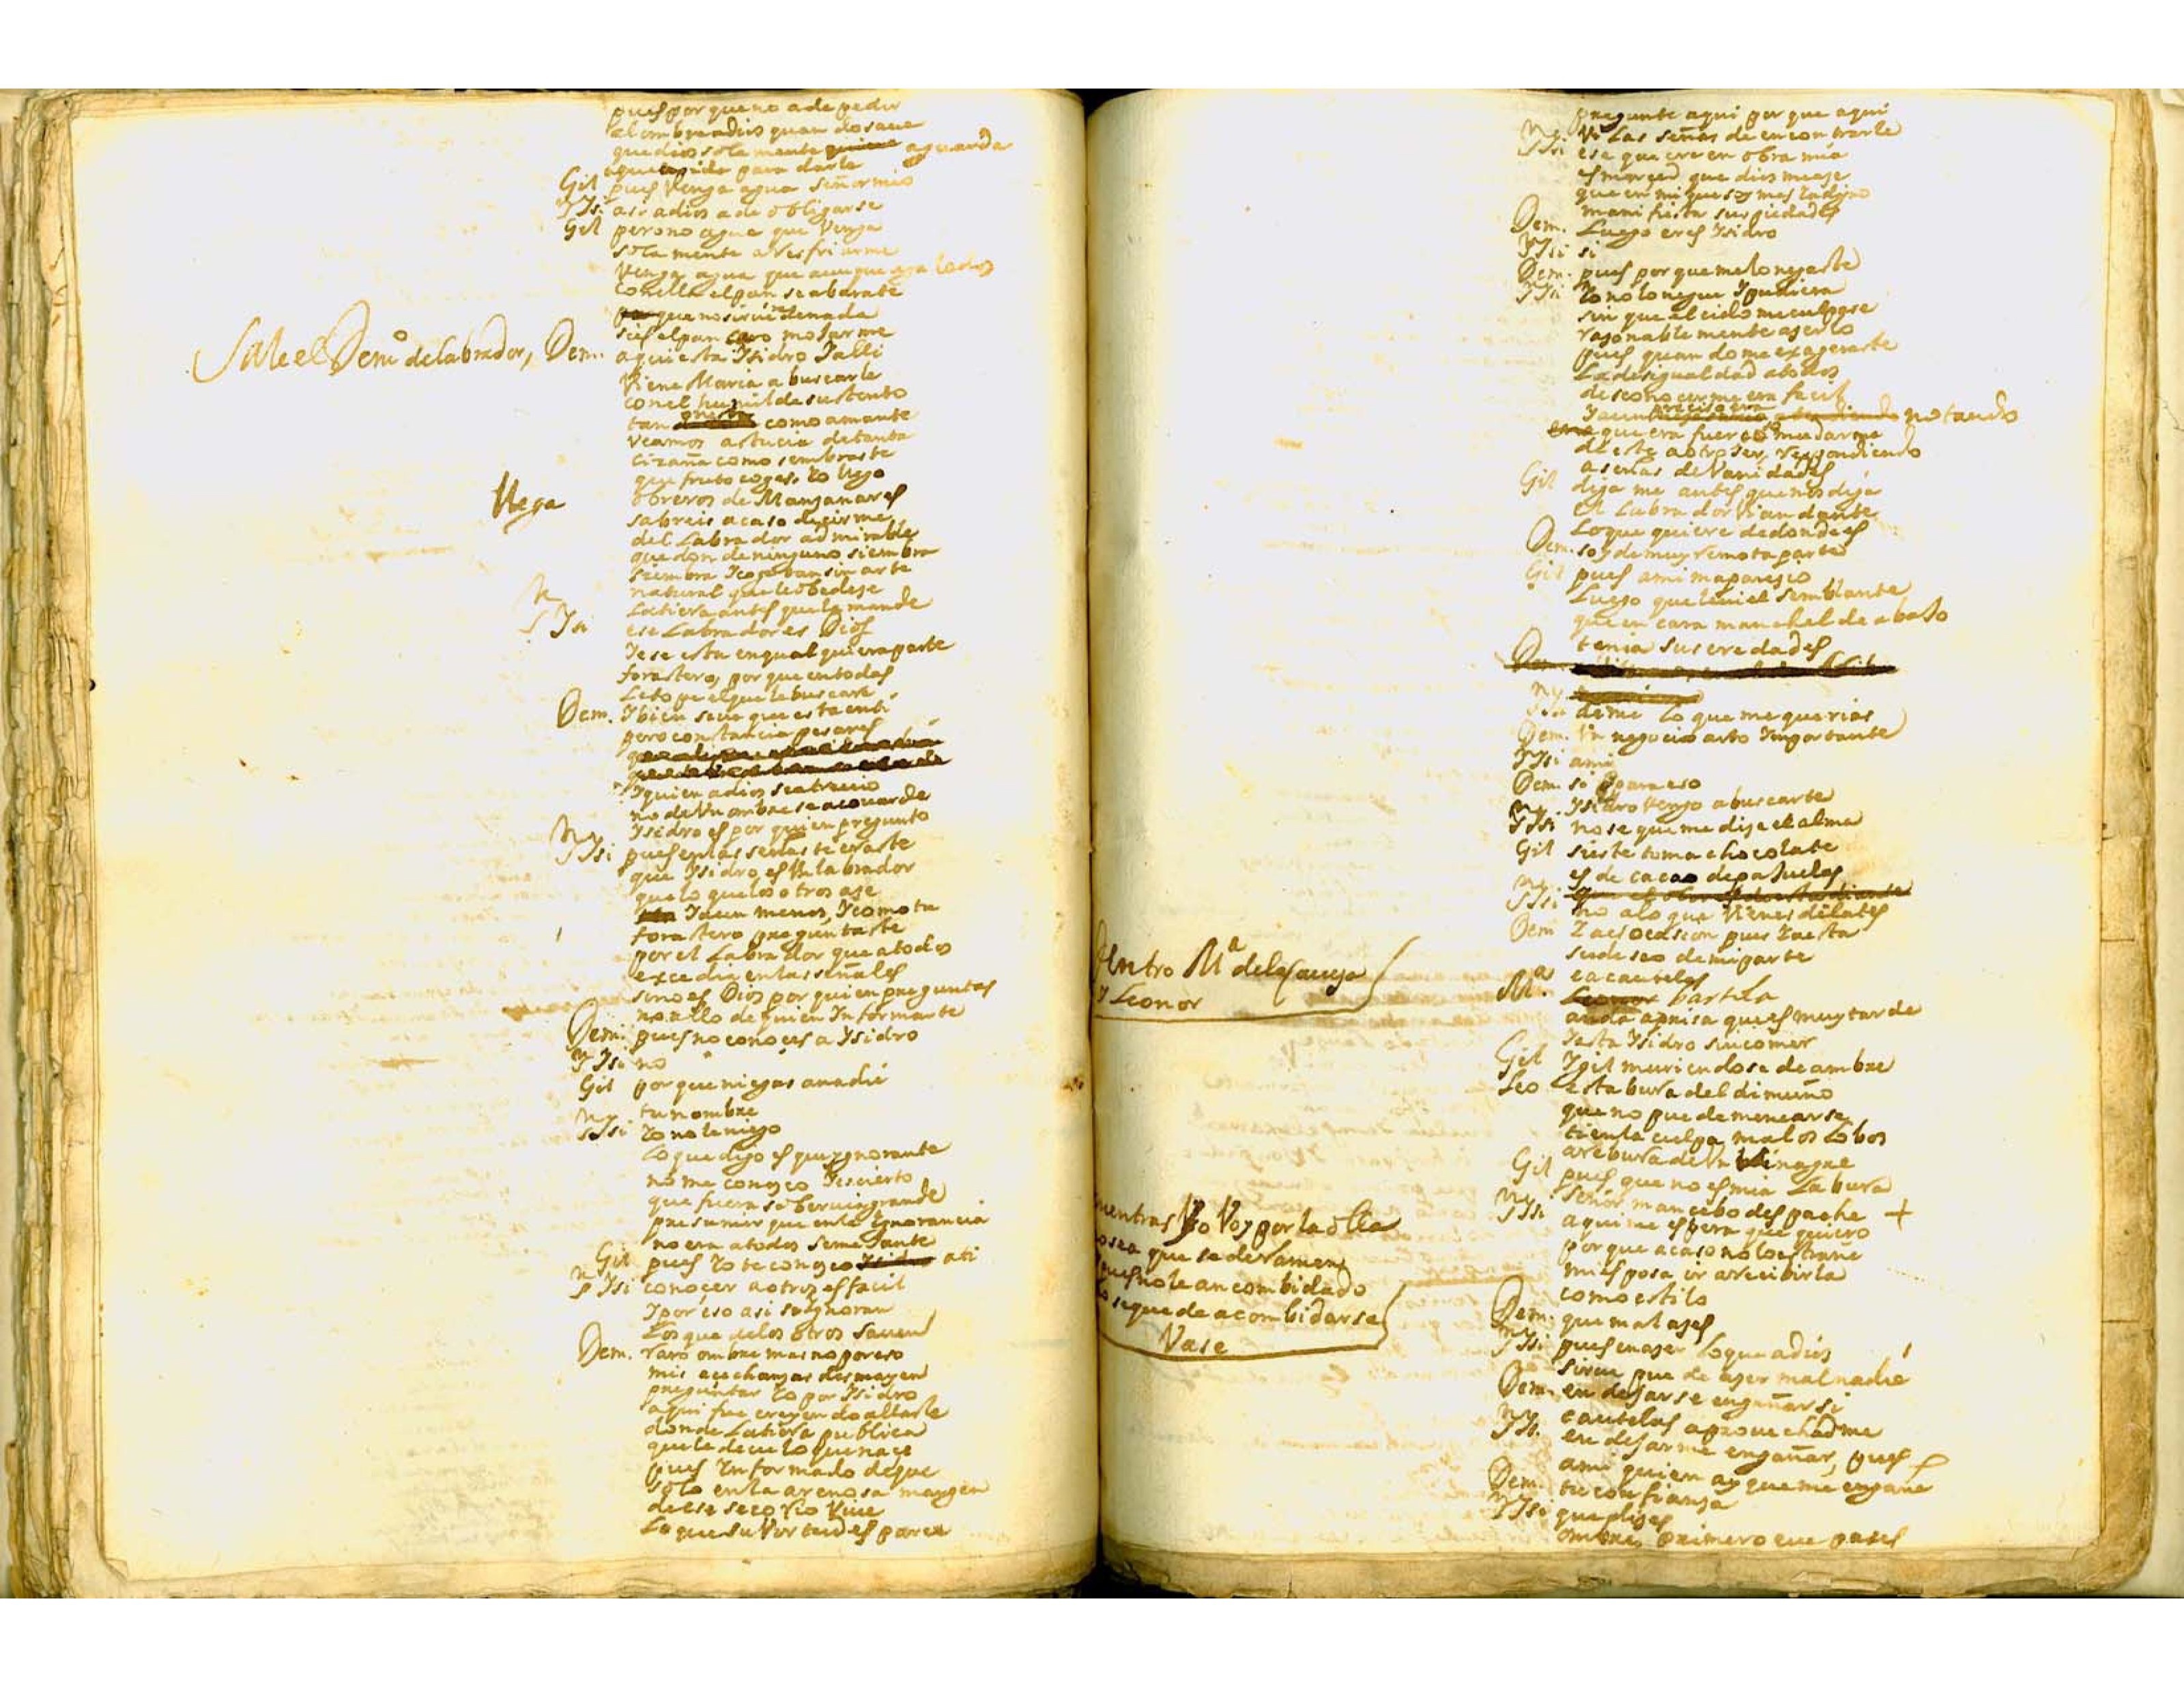 pues por que no a de pedir
el ombre a dios quan do saue
que dios sola mente aguarda
a que le pida para darle
Gil pues venga agua señor mio
S.n Ysi. asi a dios a de obligarse
Gil pero no agua que venga
sola mente a resfriarme
venga agua que aunque
con ella el pan se abarate
que no sirue de nada
si es el pan caro mojarme
Sale el Demo de labrador, Dem. aqui esta Ysidro Jalli
viene Maria a buscarle
con el humilde sustento
tan como amante
veamos astucia de tanta
cizaña como sembraste
que fruto coges. Yo llego
llega
obreros de Manzanares
sabreis acaso decirme
del Labrador admirable
que don de ninguno siembra
siembra Y coge tan sin arte
natural que le obedese
la tiera antes que la mande
S.n Ysi ese Labrador es Dios
Y ese esta en qual quiera parte
forastero, por que en todas
le tope el que le buscare
Dem. Y bien se ve que esta en ti
pero constancia pesares
Y quien a dios se atreuio
no de Un ombre se acouarde
Ysidro es por quien pregunto
S.n Ysi pues en las señas te eraste
que Ysidro, es Un labrador
que lo que los otros ase
Y aun menos, Y como tu
forastero preguntaste
por el Labrador que a todos
excedia en las señales
sino es Dios por quien preguntas
no allo de quien Informarte
Dem. pues no conoces a Ysidro
S.n Ysi no
Gil por que niegas a nadie
tu nombre
S.n Ysi Yo no le niego
lo que digo es que ygnorante
no me conozco Y es cierto
que fuera soberuia grande
presumir que en la Ignorancia
no era a todos semejante
Gil pues Yo te conozco a ti
S.n Ysi conocer a otros es facil
Y por eso asi se Ygnoran
los que de los otros sauen
Dem. raro ombre mas no por eso
mis acechanzas desmayen
preguntar Yo por Ysidro
aqui fue creyendo allarle
donde la tiera publica
que le deue lo que nace
pues Informado de que
solo en la arenosa margen
de ese seco rio viue
lo que su Vertud es parce
pregunte aqui por que aqui
vi las señas de encontrarle
S.n Ysi ese que cre en obra mia
es merced que dios me ase
que en mi que soy mas indigno
manifiesta sus piedades
Dem. Luego eres Ysidro
S.n Ysi si
Dem. pues por que me lo negaste
S.n Ysi Yo no lo negue Y pudiera
sin que el cielo me culpase
rasonable mente aserlo
pues quan do me exageraste
la desigualdad a todos
desconocerme era facil
notando
que era fuerza mudarme
de este a otro ser, respondiendo
a señas de Vanidades
Gil diga me antes que nos deja
el Labrador Viandante
lo que quiere de donde es
Dem. soy de muy remota parte
Gil pues a mi ma paresio
luego que le vi el semblante
que en cara manchel de abajo
tenia sus eredades
S.n Ysi deme lo que me querias
Dem. Un negocio arto Importante
S.n Ysi a mi
Dem. si Y para eso
Ysidro vengo a buscarte
S.n Ysi no se que me dise el alma
Gil si este toma chocolate
es de cacao de pajuelas
S.n Ysi no a lo que vienes dilates
Dem Y a es ocasion pues Ya esta
su deseo de mi parte
ea cautelas
Dentro M.a de la Caueza
y Leonor
M.a bartila
anda aprisa que es muy tarde
Y esta Ysidro sin comer
Gil Y gil muriendose de ambre
Leo esta bura del dimuño
que no puede menearse
tien la culpa, malos lobos
are bura de Un vinagre
Gil pues que no es mia la bura
S.n Ysi Señor mancebo despache +
aqui me espera que quiero
por que acaso no lo estrañe
mi esposa ir a recibirla
como estilo
mientras Yo Voy por la olla
no sea que se deramen
pues no le an combidado
lo segue de acombidarse
Vase
Dem. que mal ases
S.n Ysi pues en aser lo que a dios
sirue que de aser mal nadie
Dem. en dejarse engañar si
cautelas aprouechadme
S.n Ysi en dejarme engañar, pues
a mi quien ay que me engañe
Dem. tu confianza
S.n Ysi que dises
ombre, primero que pases